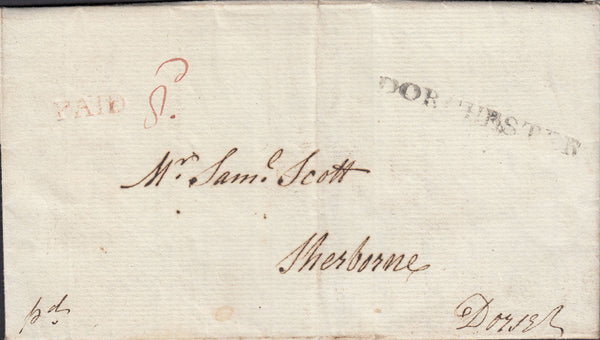 PAID
DORCHESTER
Mr. Saml. Scott
Sherborne
pd
Dorset